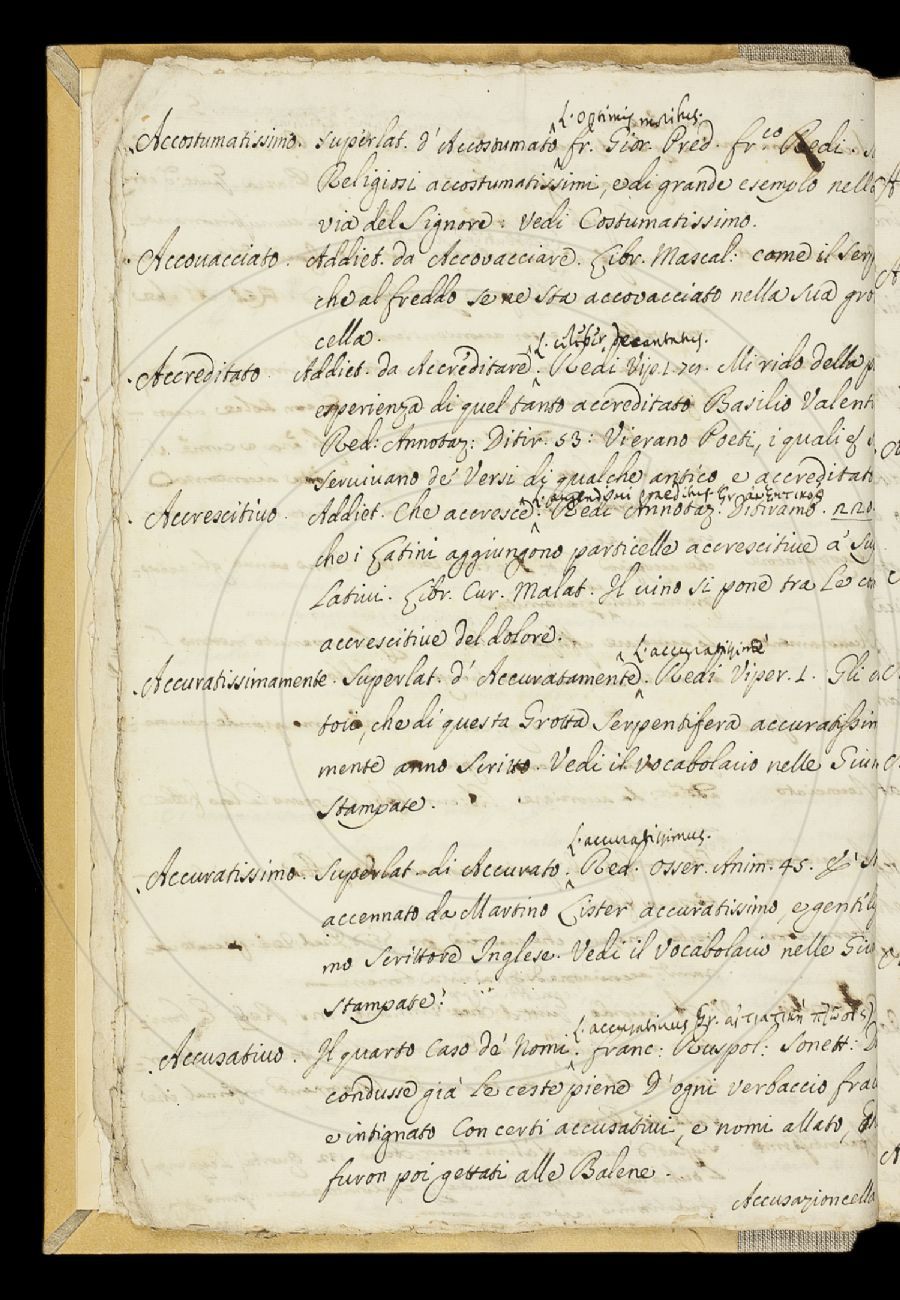 L. optimis moribus.
Accostumatissimo. Superlat. d' Accostumato fr. Gior. Pred. fr.co Redi.
Religiosi accostumatissimi, e di grande esemplo nella
via del Signore: Vedi Costumatissimo.
Accovacciato. Addiet. da Accovacciare. Libr. Mascal: come il Serp
che al freddo se ne sta accovacciato nella sua gro
cella.
L. celeber, decantatus.
Accreditato. Addiet. da Accreditare. Redi Vip. 1. 79. Mi rido della
esperienza di quel tanto accreditato Basilio Valent
Red: Annotaz: Ditir. 53: Vi erano Poeti, i quali
servivano de' Versi di qualche antico e accreditato
L. augendi vim
Accrescitivo. Addiet. Che accresce. Redi Annotaz. Ditiramb. 220.
che i Latini aggiungono particelle accrescitive a' Su
lativi. Libr. Cur. Malat. Il vino si pone tra le co
accrescitive del dolore.
L. accuratissime
Accuratissimamente. Superlat. d' Accuratamente. Redi Viper. 1. Gli
torii, che di questa Grotta Serpentifera accuratissim
mente anno Scritto. Vedi il Vocabolario nelle Giun
Stampate.
L. accuratissimus.
Accuratissimo. Superlat. di Accurato. Red. Osser. Anim. 45.
accennato da Martino Lister accuratissimo, e gentil
mo Scrittore Inglese. Vedi il Vocabolario nelle Giu
Stampate.
L. accusativus Gr. αἰτιατική πτῶσις
Accusativo. Il quarto Caso de' Nomi. Franc: Ruspol: Sonett:
condusse già le ceste piene D' ogni verbaccio fra
e intignato Con certi accusativi, e nomi allato,
furon poi gettati alle Balene.
Accusazioncella